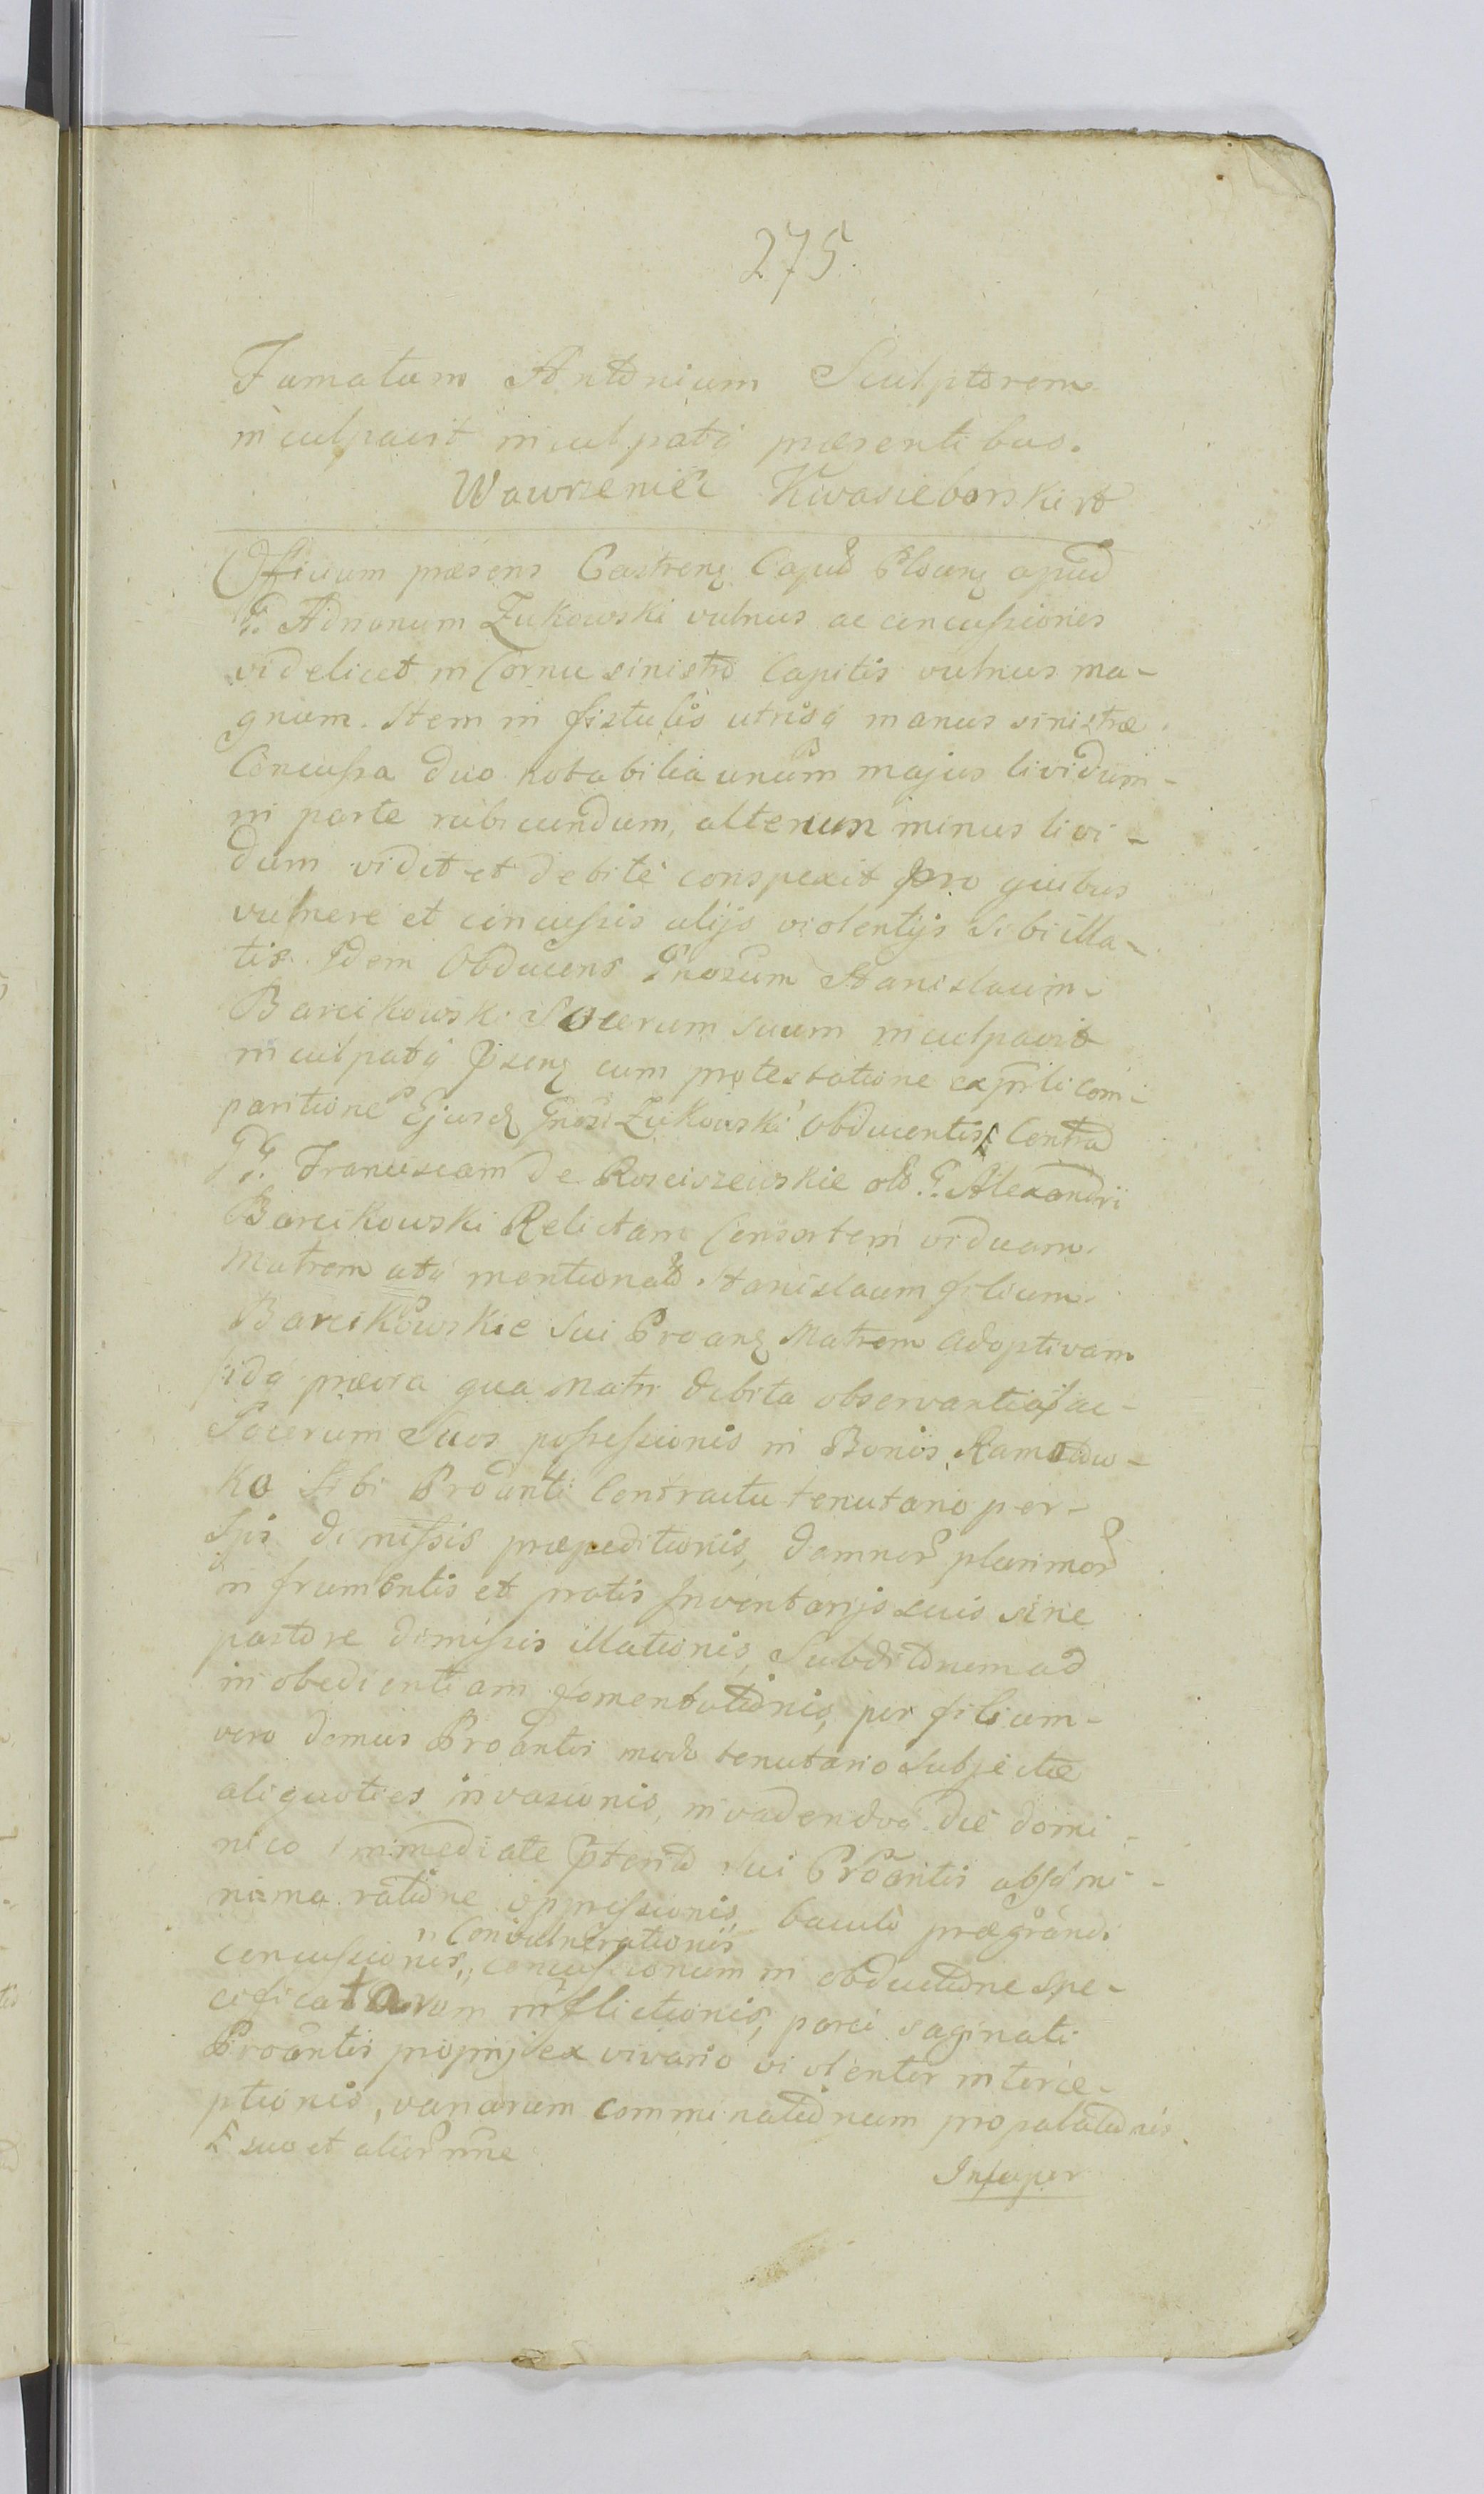 275.
Famatum Antonium Sculptorem
inculpavit inculpatq̃ præsentibus.
Wawrzeniec Kwasieborski
Officium præsens Castrenɀ Capłe Płocenɀ apud
G. Adrianum Zukowski vulnus ac concussiones
videlicet in Cornu sinistro Capitis vulnus ma-
gnum. Item in fistulis utrisq̃ manus sinistræ
Concussa duo notabilia unum majus lividum
in parte rubicundum, alterum minus livi-
dum vidit et debite conspexit pro quibus
vulnere et concussis alijs violentijs sibi illa-
tis. Idem Obducens Gnosum Stanislaum
Barcikowski Socerum suum inculpavit
inculpatq̃ p̃senɀ cum protestatione ex p̃nli com-
paritione Ejusd̃ Gnosi Zukowski Obducentis Contra
GG. Franciscam de Rosciszewskie olo. G. Alexandri
Barcikowski Relictam Consortem viduam
Matrem atq̃ mentionato Stanislaum filium
Barcikowskie sui Proanɀ Matrem adoptivam
idq̃ prævia qua Matri debita observantia ac
Socerum Suos possessionis in Bonis Ramutów-
ko sibi Proanti Contractu tenutario per
Ipsos dimissis præpeditionis, damnor̃ plurimor̃
in frumentis et pratis Inventarijs suis sine
pastore dimissis illationis, Subditorum ad
inobedientiam fomentationis, per filium
vero domus Proantis modo tenutario subjectæ
aliquoties invasionis, invadendoq̃ die domi-
nico immediate p̃terito sui Proantis absq̃ mi-
nima ratione oppressionis, baculo prægrandi
concussionis, „Convulnerationis
concussionum in obductione spe-
cificatarum inflictionis, porci saginati
Proantis proprij ex vivario violenter interce-
ptionis, variarum comminationum propalationis
suo et alior̃ nñe
Insuper